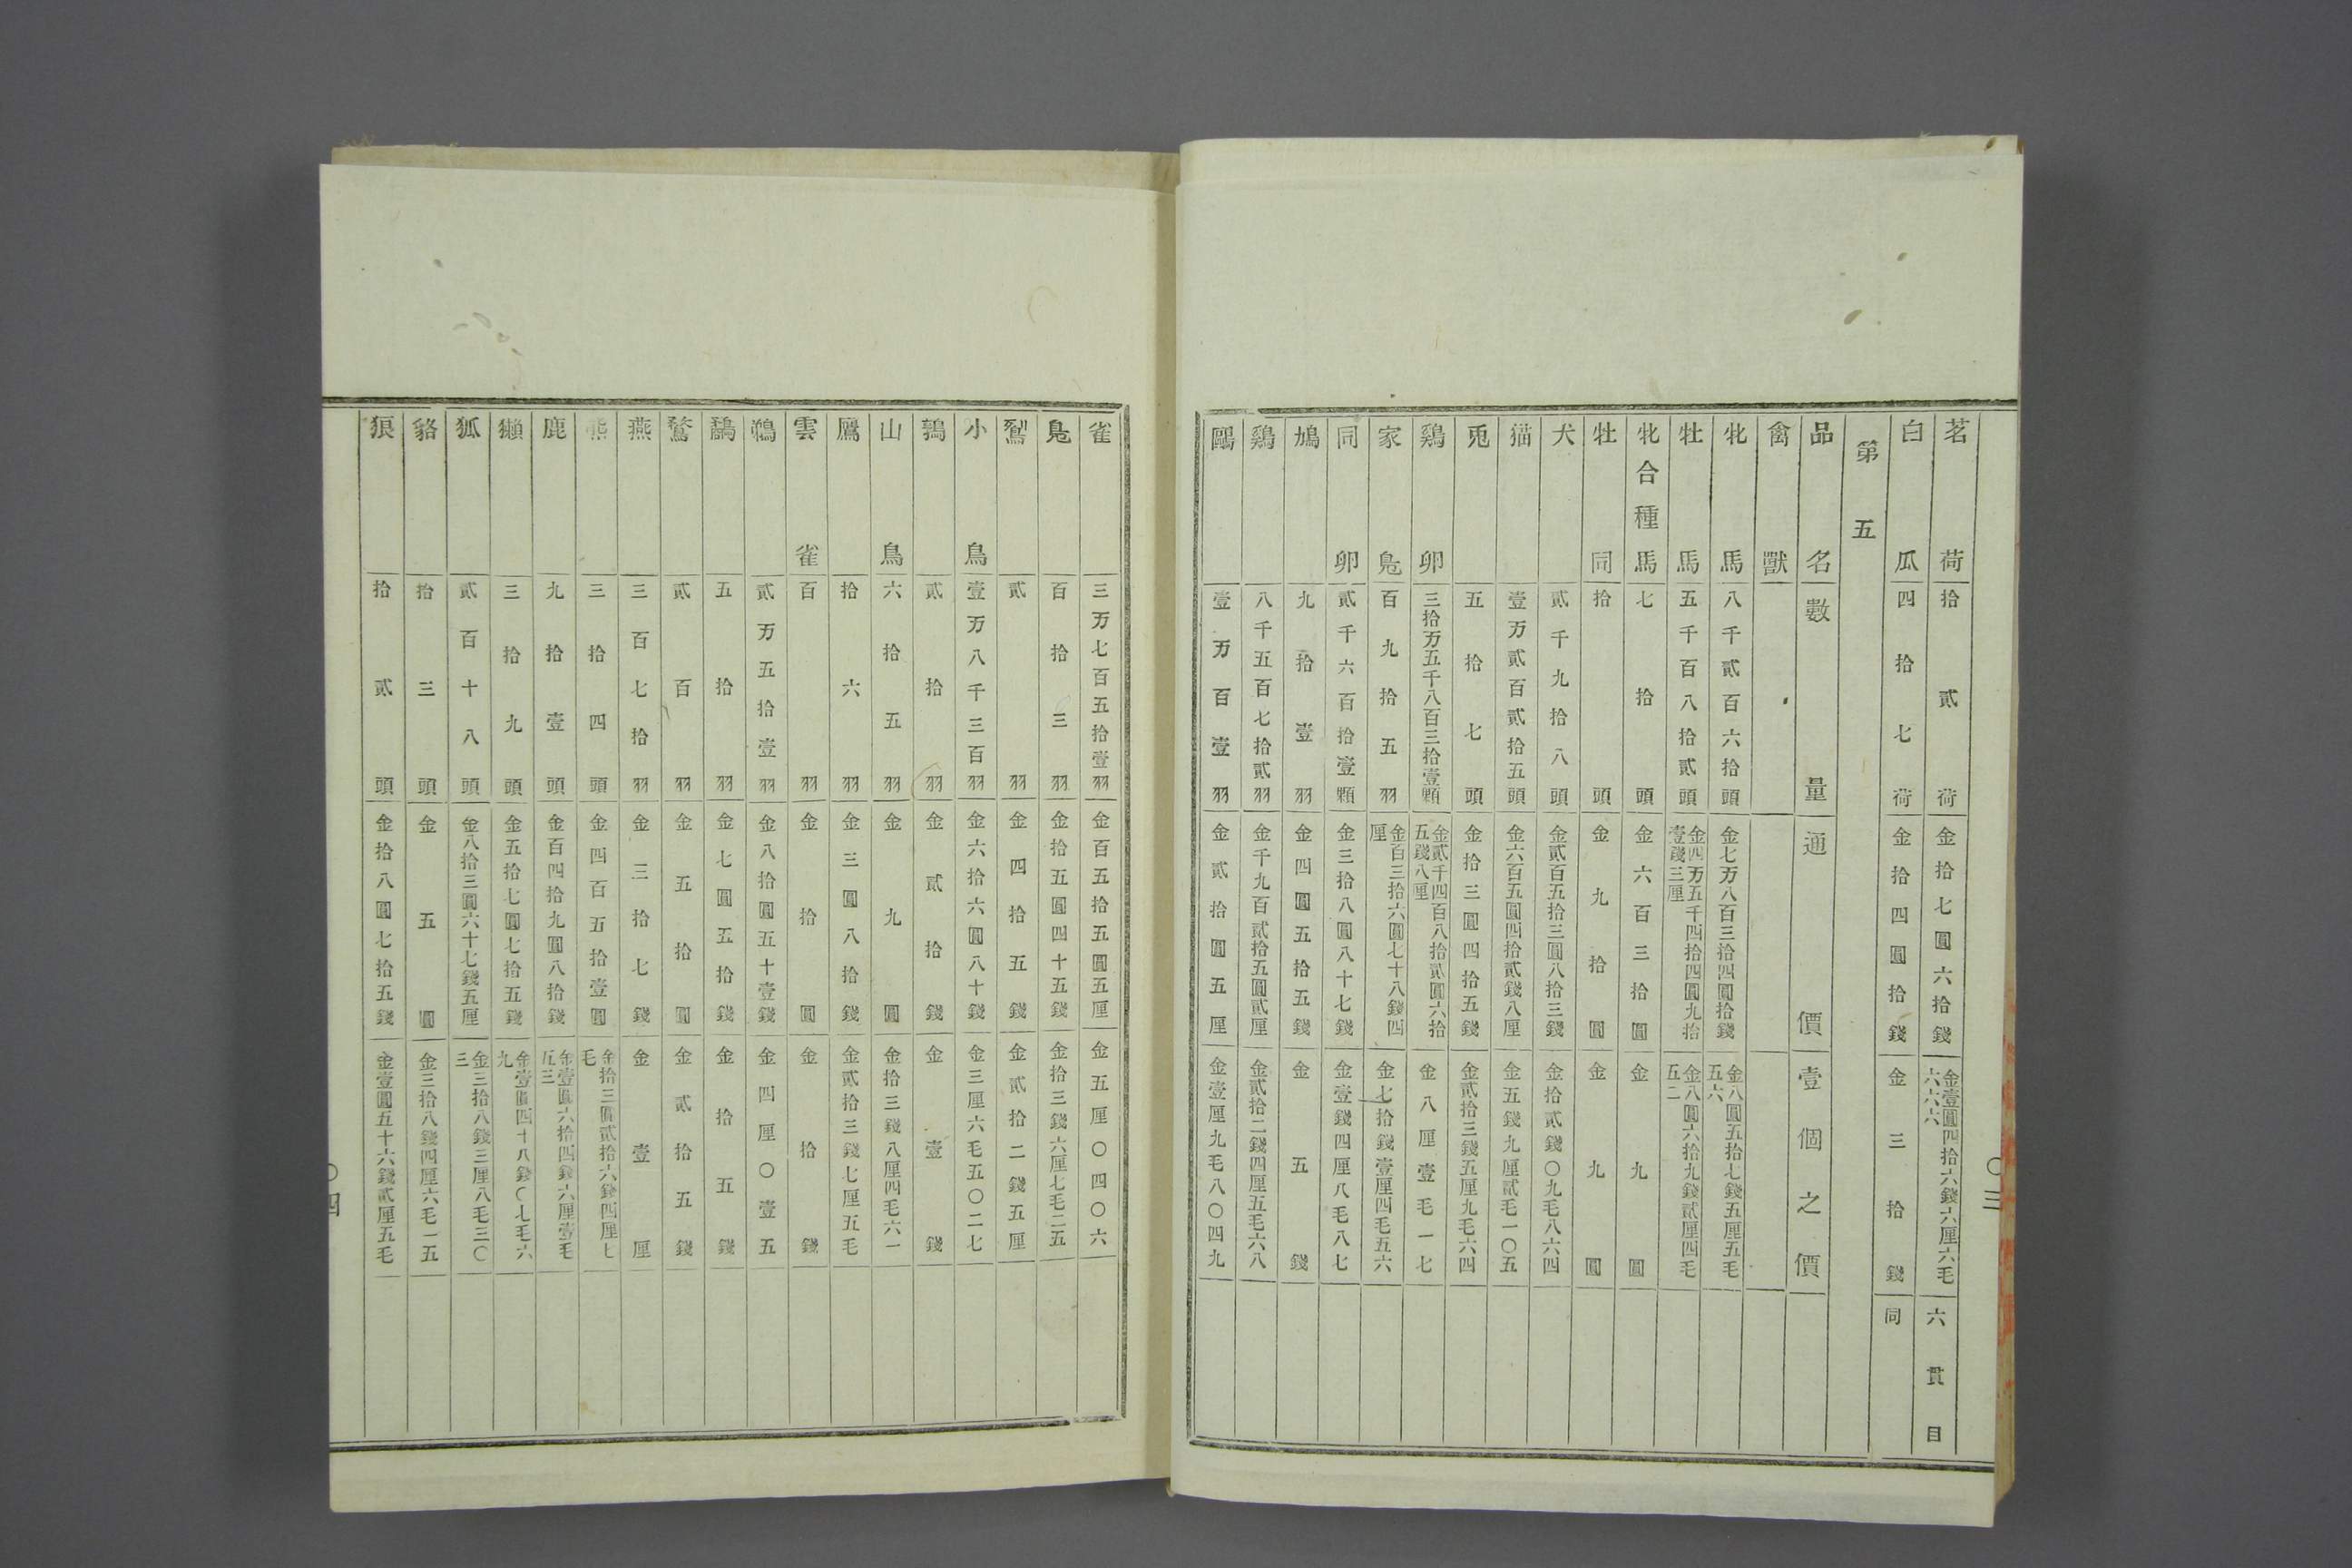 茗荷 拾貳荷 金拾七圓六拾錢 金壹圓四拾六錢六厘六毛六六六 六貫目
白瓜 四拾七荷 金拾四圓拾錢 金三拾錢 同
第五
品名 數量 通價 壹個之價
禽獸
牝馬 八千貳百六拾頭 金七万八百三拾四圓拾錢 金八圓五拾七錢五厘五毛五六
牡馬 五千百八拾貳頭 金四万五千四拾四圓九拾壹錢三厘 金八圓六拾九錢貳厘四毛五二
牝合種馬 七拾頭 金六百三拾圓 金九圓
牡同 拾頭 金九拾圓 金九圓
犬 貳千九拾八頭 金貳百五拾三圓八拾三錢 金拾貳錢〇九毛八六四
猫 壹万貳百貳拾五頭 金六百五圓四拾貳錢八厘 金五錢九厘貳毛一〇五
兎 五拾七頭 金拾三圓四拾五錢 金貳拾三錢五厘九毛六四
鷄卵 三拾万五千八百三拾壹顆 金貳千四百八拾貳圓六拾五錢八厘 金八厘壹毛一七
家鳧 百九拾五羽 金百三拾六圓七十八錢四厘 金七拾錢壹厘四毛五六
同卵 貳千六百拾壹顆 金三拾八圓八十七錢 金壹錢四厘八毛八七
鳩 九拾壹羽 金四圓五拾五錢 金五錢
鷄 八千五百七拾貳羽 金千九百貳拾五圓貳厘 金貳拾二錢四厘五毛六八
鷗 壹万百壹羽 金貳拾圓五厘 金壹厘九毛八〇四九
〇三
雀 三万七百五拾壹羽 金百五拾五圓五厘 金五厘〇四〇六
鳧 百拾三羽 金拾五圓四十五錢 金拾三錢六厘七毛二五
鴷 貳羽 金四拾五錢 金貳拾二錢五厘
小鳥 壹万八千三百羽 金六拾六圓八十錢 金三厘六毛五〇二七
鶉 貳拾羽 金貳拾錢 金壹錢
山鳥 六拾五羽 金九圓 金拾三錢八厘四毛六一
鷹 拾六羽 金三圓八拾錢 金貳拾三錢七厘五毛
雲雀 百羽 金拾圓 金拾錢
鵯 貳万五拾壹羽 金八拾圓五十壹錢 金四厘〇壹五
五拾羽 金七圓五拾錢 金拾五錢
貳百羽 金五拾圓 金貳拾五錢
燕 三百七拾羽 金三拾七錢 金壹厘
熊 三拾四頭 金四百五拾壹圓 金拾三圓貳拾六錢四厘七毛
鹿 九拾壹頭 金百四拾九圓八拾錢 金壹圓六拾四錢六厘壹毛五三
獺 三拾九頭 金五拾七圓七拾五錢 金壹圓四十八錢〇七毛六九
狐 貳百十八頭 金八拾三圓六十七錢五厘 金三拾八錢三厘八毛三〇三
貉 拾三頭 金五圓 金三拾八錢四厘六毛一五
狼 拾貳頭 金拾八圓七拾五錢 金壹圓五十六錢貳厘五毛
〇四